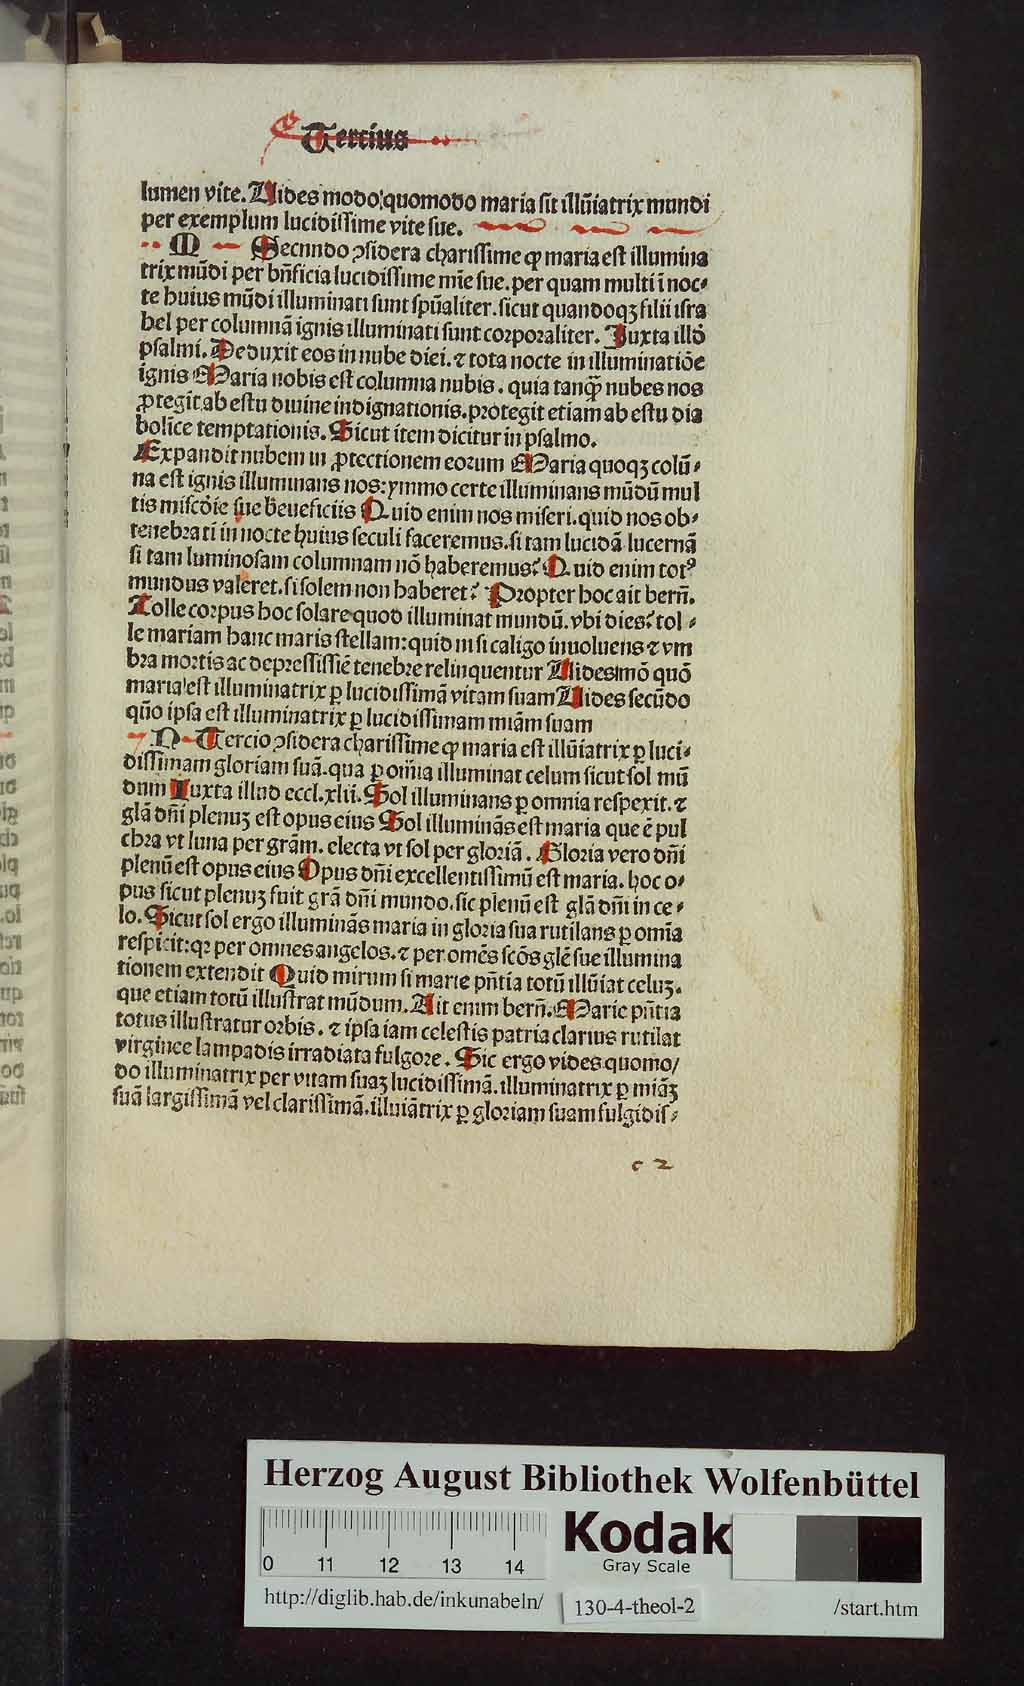 Tercius
lumen vite. Uides modo: quomodo maria sit illūiatrix mundi
per exemplum lucidissime vite sue.
M Secnndo ꝯsidera charissime ꝙ maria est illumina
trix mūdi per bn̄ficia lucidissime mīe sue. per quam multi ī noc⸗
te huius mūdi illuminati sunt spūaliter. sicut quandoqꝫ filii isra
hel per columnā ignis illuminati sunt corporaliter. Juxta illd̓
psalmi. Deduxit eos in nube diei. ⁊ tota nocte in illuminatiōe
ignis Maria nobis est columna nubis. quia tanqꝫ̄ nubes nos
ꝓtegit ab estu diuine indignationis. protegit etiam ab estu dia
bolīce temptationis. Sicut item dicitur in psalmo.
Expandit nubem in ꝓtectionem eorum Maria quoqꝫ colū⸗
na est ignis illuminans nos: ymmo certe illuminans mūdū mul
tis misco̓ie sue beueficiis Quid enim nos miseri. quid nos ob⸗
tenebrati in nocte huius seculi faceremus. si tam lucidā lucernā
si tam luminosam columnam nō haberemus? Quid enim totꝰ
mundus valeret. si solem non haberet? Propter hoc ait bern̄.
Tolle corpus hoc solare quod illuminat mundū. vbi dies? tol⸗
le mariam hanc maris stellam: quid nisi caligo inuoluens ⁊ vm
bra mortis ac depressissiē tenebre relinquentur Uides mō quō
maria est illuminatrix ꝑ lucidissimā vitam suam Uides secūdo
qūo ipsa est illuminatrix ꝑ lucidissimam miām suam
N Tercio ꝯsidera charissime ꝙ maria est illūiatrix ꝑ luci⸗
dissimam gloriam suā. qua ꝑ om̄ia illuminat celum sicut sol mū
dum Iuxta illud eccl. xlii. Sol illuminans ꝑ omnia respexit. ⁊
glā dn̄i plenuꝫ est opus eius Sol illuminās est maria que ē pul
chra vt luna per grām. electa vt sol per gloriā. Gloria vero dn̄i
plenū est opus eius Opus dn̄i excellentissimū est maria. hoc o⸗
pus sicut plenuꝫ fuit grā dn̄i mundo. sic plenū est glā dn̄i in ce⸗
lo. Sicut sol ergo illuminās maria in gloria sua rutilans ꝑ om̄ia
respicit: qꝛ per omnes angelos. ⁊ per omēs scōs glē sue illumina
tionem extendit Quid mirum si marie pn̄tia totū illūiat celuꝫ.
que etiam totū illustrat mūdum. Ait enim bern̄. Marie pn̄tia
totus illustratur orbis. ⁊ ipsa iam celestis patria clarius rutilat
virginee lampadis irradiata fulgore. Sic ergo vides quomo/
do illuminatrix per vitam suaꝫ lucidissimā. illuminatrix ꝑ miāꝫ
suā largissimā vel clarissimā. illuiātrix ꝑ gloriam suam fulgidis⸗
c 2
Herzog August Bibliothek Wolfenbüttel
0 11 12 13 14
Kodak
Gray Scale
http://diglib.hab.de/inkunabeln/ 130-4-theol-2 /start.htm